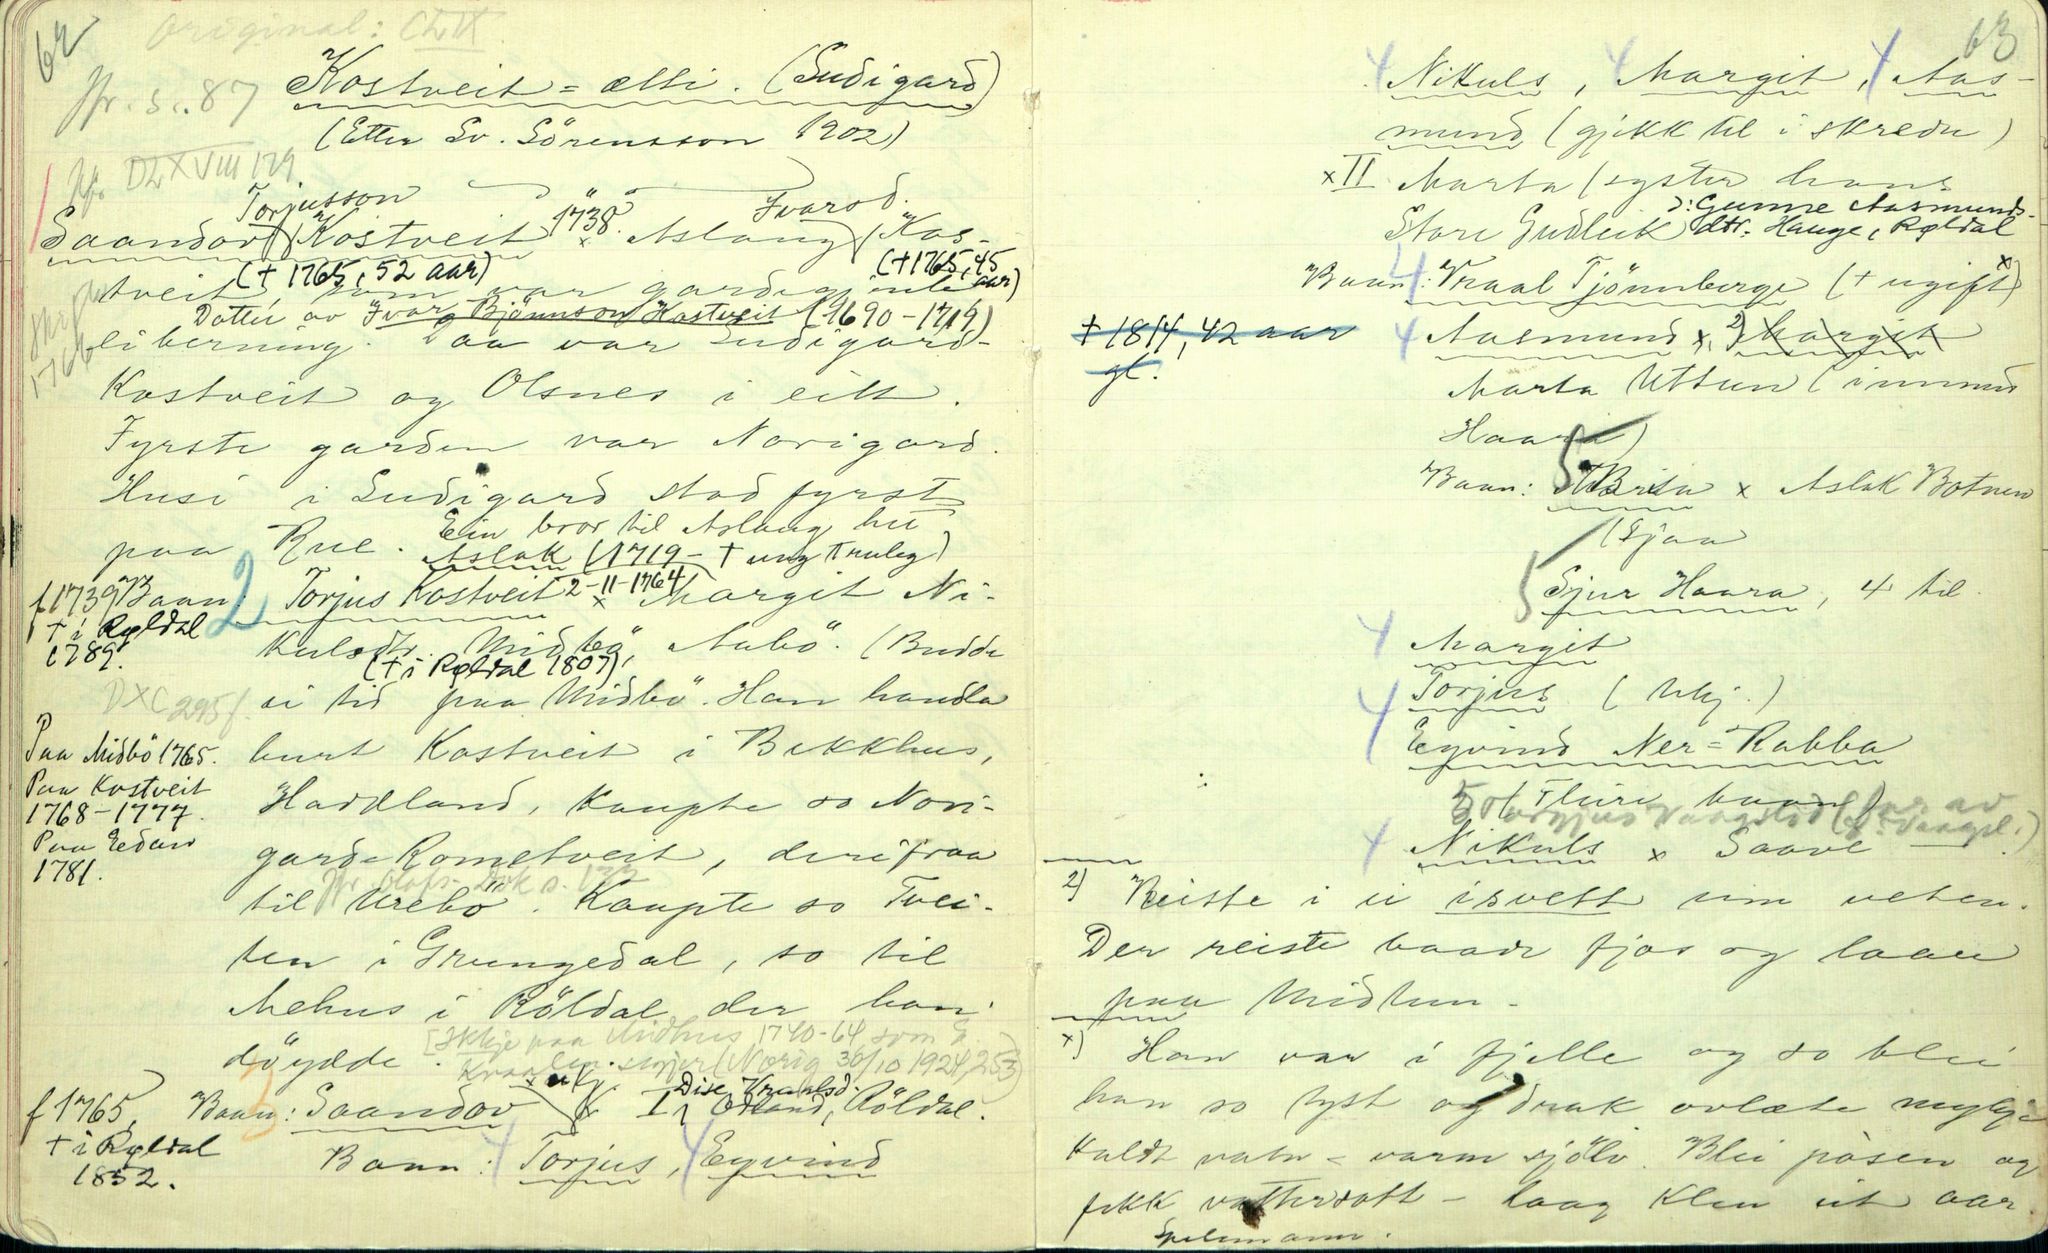 62
Original: Ch IX
Jfr. s. 87
Kostveit=ætti. (Sudigard)
(Etter Sv. Sörensson 1902)
Jfr DLXVIII 179
Torjusson 1738. Ivarsd.
Saandov (Kostveit x Aslaug (Kos-
(† 1765, 52 aar) († 1765, 45 aar)
tveit, som var gardeg
Dotter av Ivar Bjönnson Kostveit (1690-1719)
1766
liberning. Daa var Sudigard-
Kostveit og Olsnes i eitt.
Fyrste garden var Norigard.
Husi i Sudigard stod fyrst
paa Rue. Ein bror til Aslaug het
Aslak (1719- † ung truleg)
f 1739 Baan: 2 Torjus Kostveit 2-11-1764 x Margit Ni-
† i Røldal
1789.
kulsdtr. Midbö, Aabö. (Budde
(† i Røldal 1807)
DXC 295f.
ei tid paa Midbö. Han handla
Paa Midbö 1765.
burt Kostveit i Bekkhus,
Paa Kostveit
1768-1777.
Haddland, kaupte so Nori-
Paa Edaw
1781.
gard-Rometveit, derifraa
Jfr. Olafs-
til Urebö. Kaupte so Tvei-
ten i Grungedal, so til
Mehus i Röldal der han
döydde.
[Ikkje paa Midhus 1740-64 som
(Norig 30/10 1924, 253)
x ukj. Dise Vraalsd.
f 1765, Baan: 3 Saandov x I, Odland, Röldal.
† i Røldal
1852.
Baan: 4 Torjus, 4 Eyvind
63
4 Nikuls, 4 Margit, 4 Aas-
mund (gjekk til i skredu)
x II Marta (syster hans
ɔ: Gunne Aasmunds-
Store Gudleik dtr. Hauge, Røldal
Baan: 4 Vraal Tjönnberge († ugift x)
† 1814, 42 aar
gl.
4 Aasmund x, 2) Margit
Marta Uttun (innmed
Haara)
Baan: 5 Brita x Aslak Botnen
(Sjaa
5 Sjur Haara, 4 til.
4 Margit
4 Torjus (Ukj.)
4 Eyvind Ner=Rabba
(Fleire baan)
4 Nikuls x Saave
2) Reiste i ei isvett um veten.
Der reiste baade fjos og laae
paa Midtun.
x) Han var i fjelle og so blei
han so tyst og drak ovlæte mykje
kaldt vatn - varm sjölv. Blei pösen og
fekk vattersott - laag klen eit aar.
Spelemann.